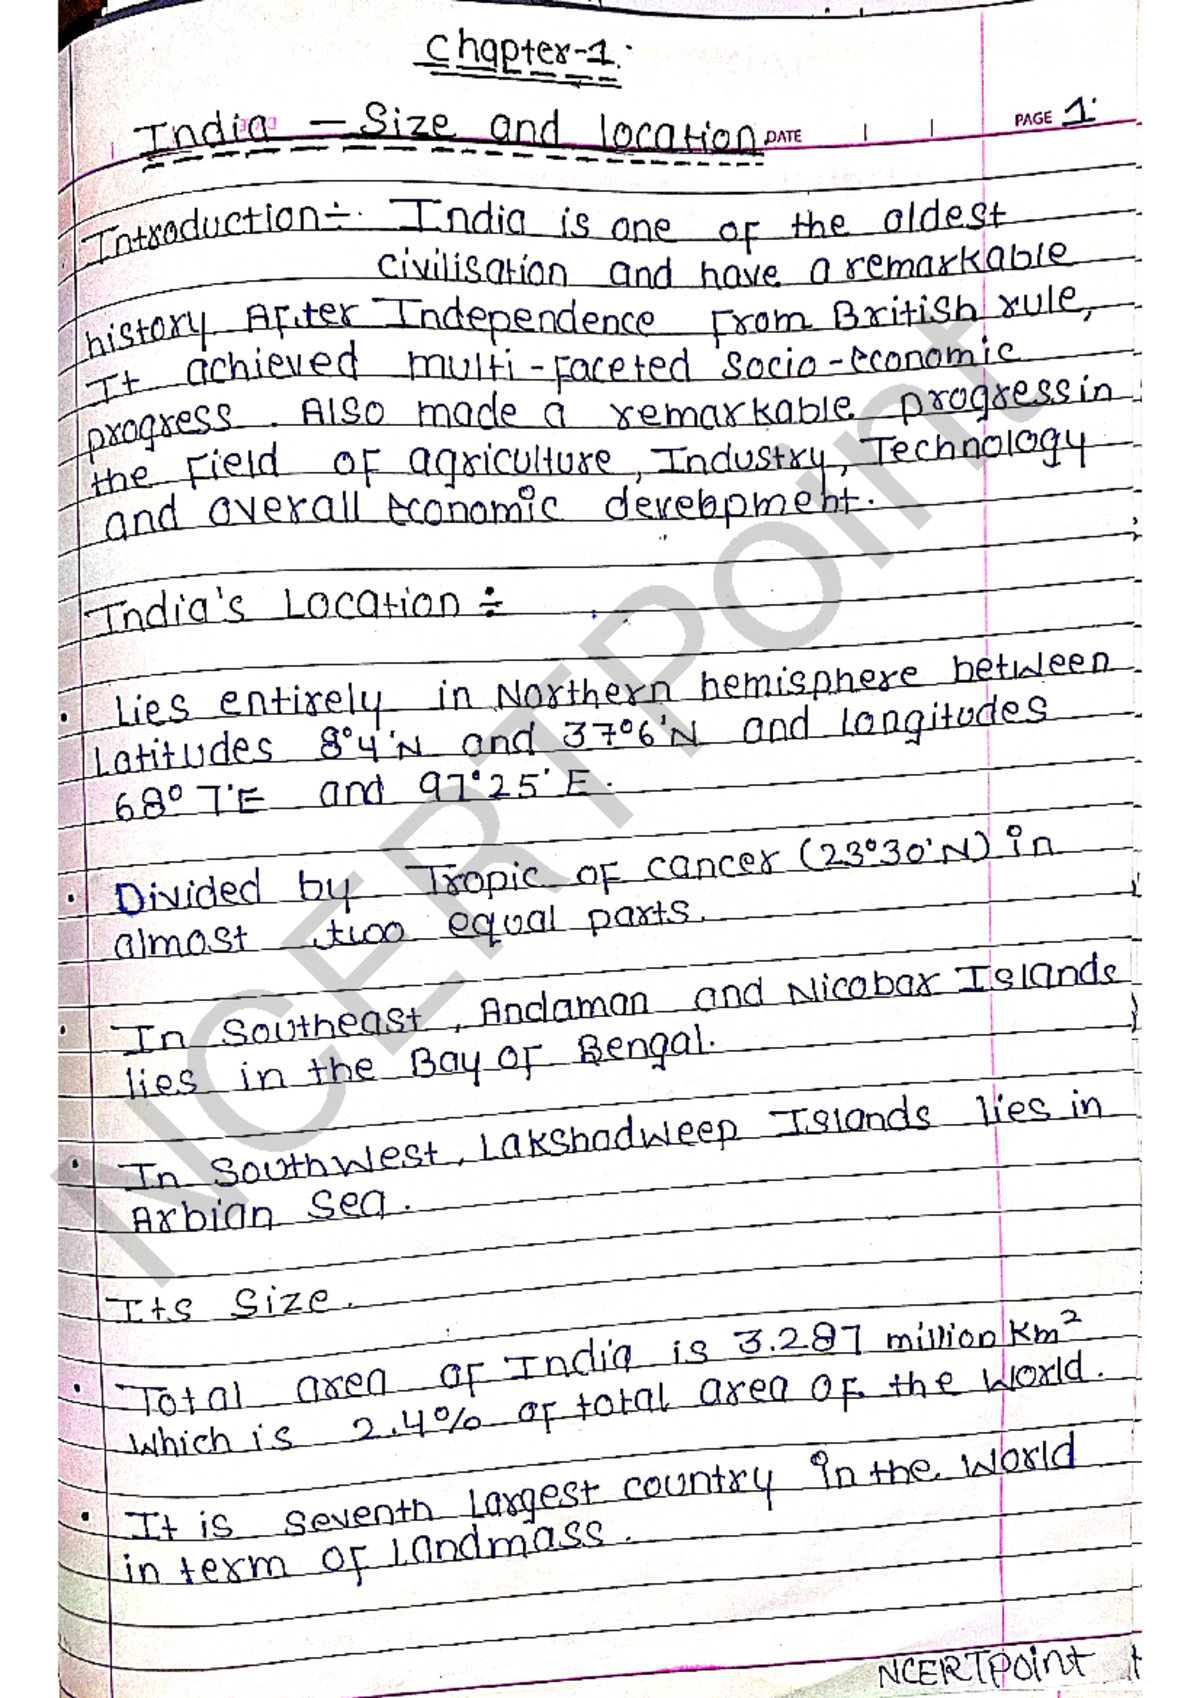 Chapter-1.
India - Size and location DATE
PAGE 1.
Introduction÷. India is one of the oldest
civilisation and have a remarkable
history. After Independence from British rule,
It achieved multi-faceted socio-economic
progress. Also made a remarkable progress in
the field of agriculture, Industry, Technology
and overall economic development.
India's Location ÷
. Lies entirely in Northern hemisphere between
Latitudes 8°4'N and 37°6'N and longitudes
68° 7'E and 97°25'E.
. Divided by Tropic of cancer (23°30'N) in
almost two equal parts.
. In Southeast, Andaman and Nicobar Islands
lies in the Bay of Bengal.
. In Southwest, Lakshadweep Islands lies in
Arbian Sea.
Its Size.
. Total area of India is 3.287 million km²
which is 2.4% of total area of the world.
. It is seventh largest country in the world
in term of landmass.
NCERTPoint
NCERTPoint